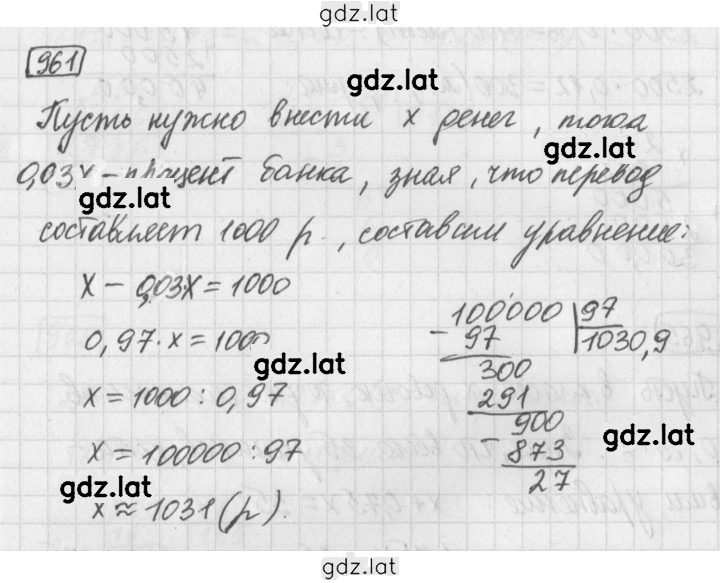 gdz.lat
961
gdz.lat
Пусть нужно внести x денег, тогда
gdz.lat
0,03x - процент банка, зная, что перевод
gdz.lat
составляет 1000 р., составим уравнение:
x - 0,03x = 1000
0,97 · x = 1000
gdz.lat
x = 1000 : 0,97
x = 100000 : 97
gdz.lat
x ≈ 1031 (р).
100000 | 97
- 97
1030,9
300
291
900
gdz.lat
- 873
27
gdz.lat